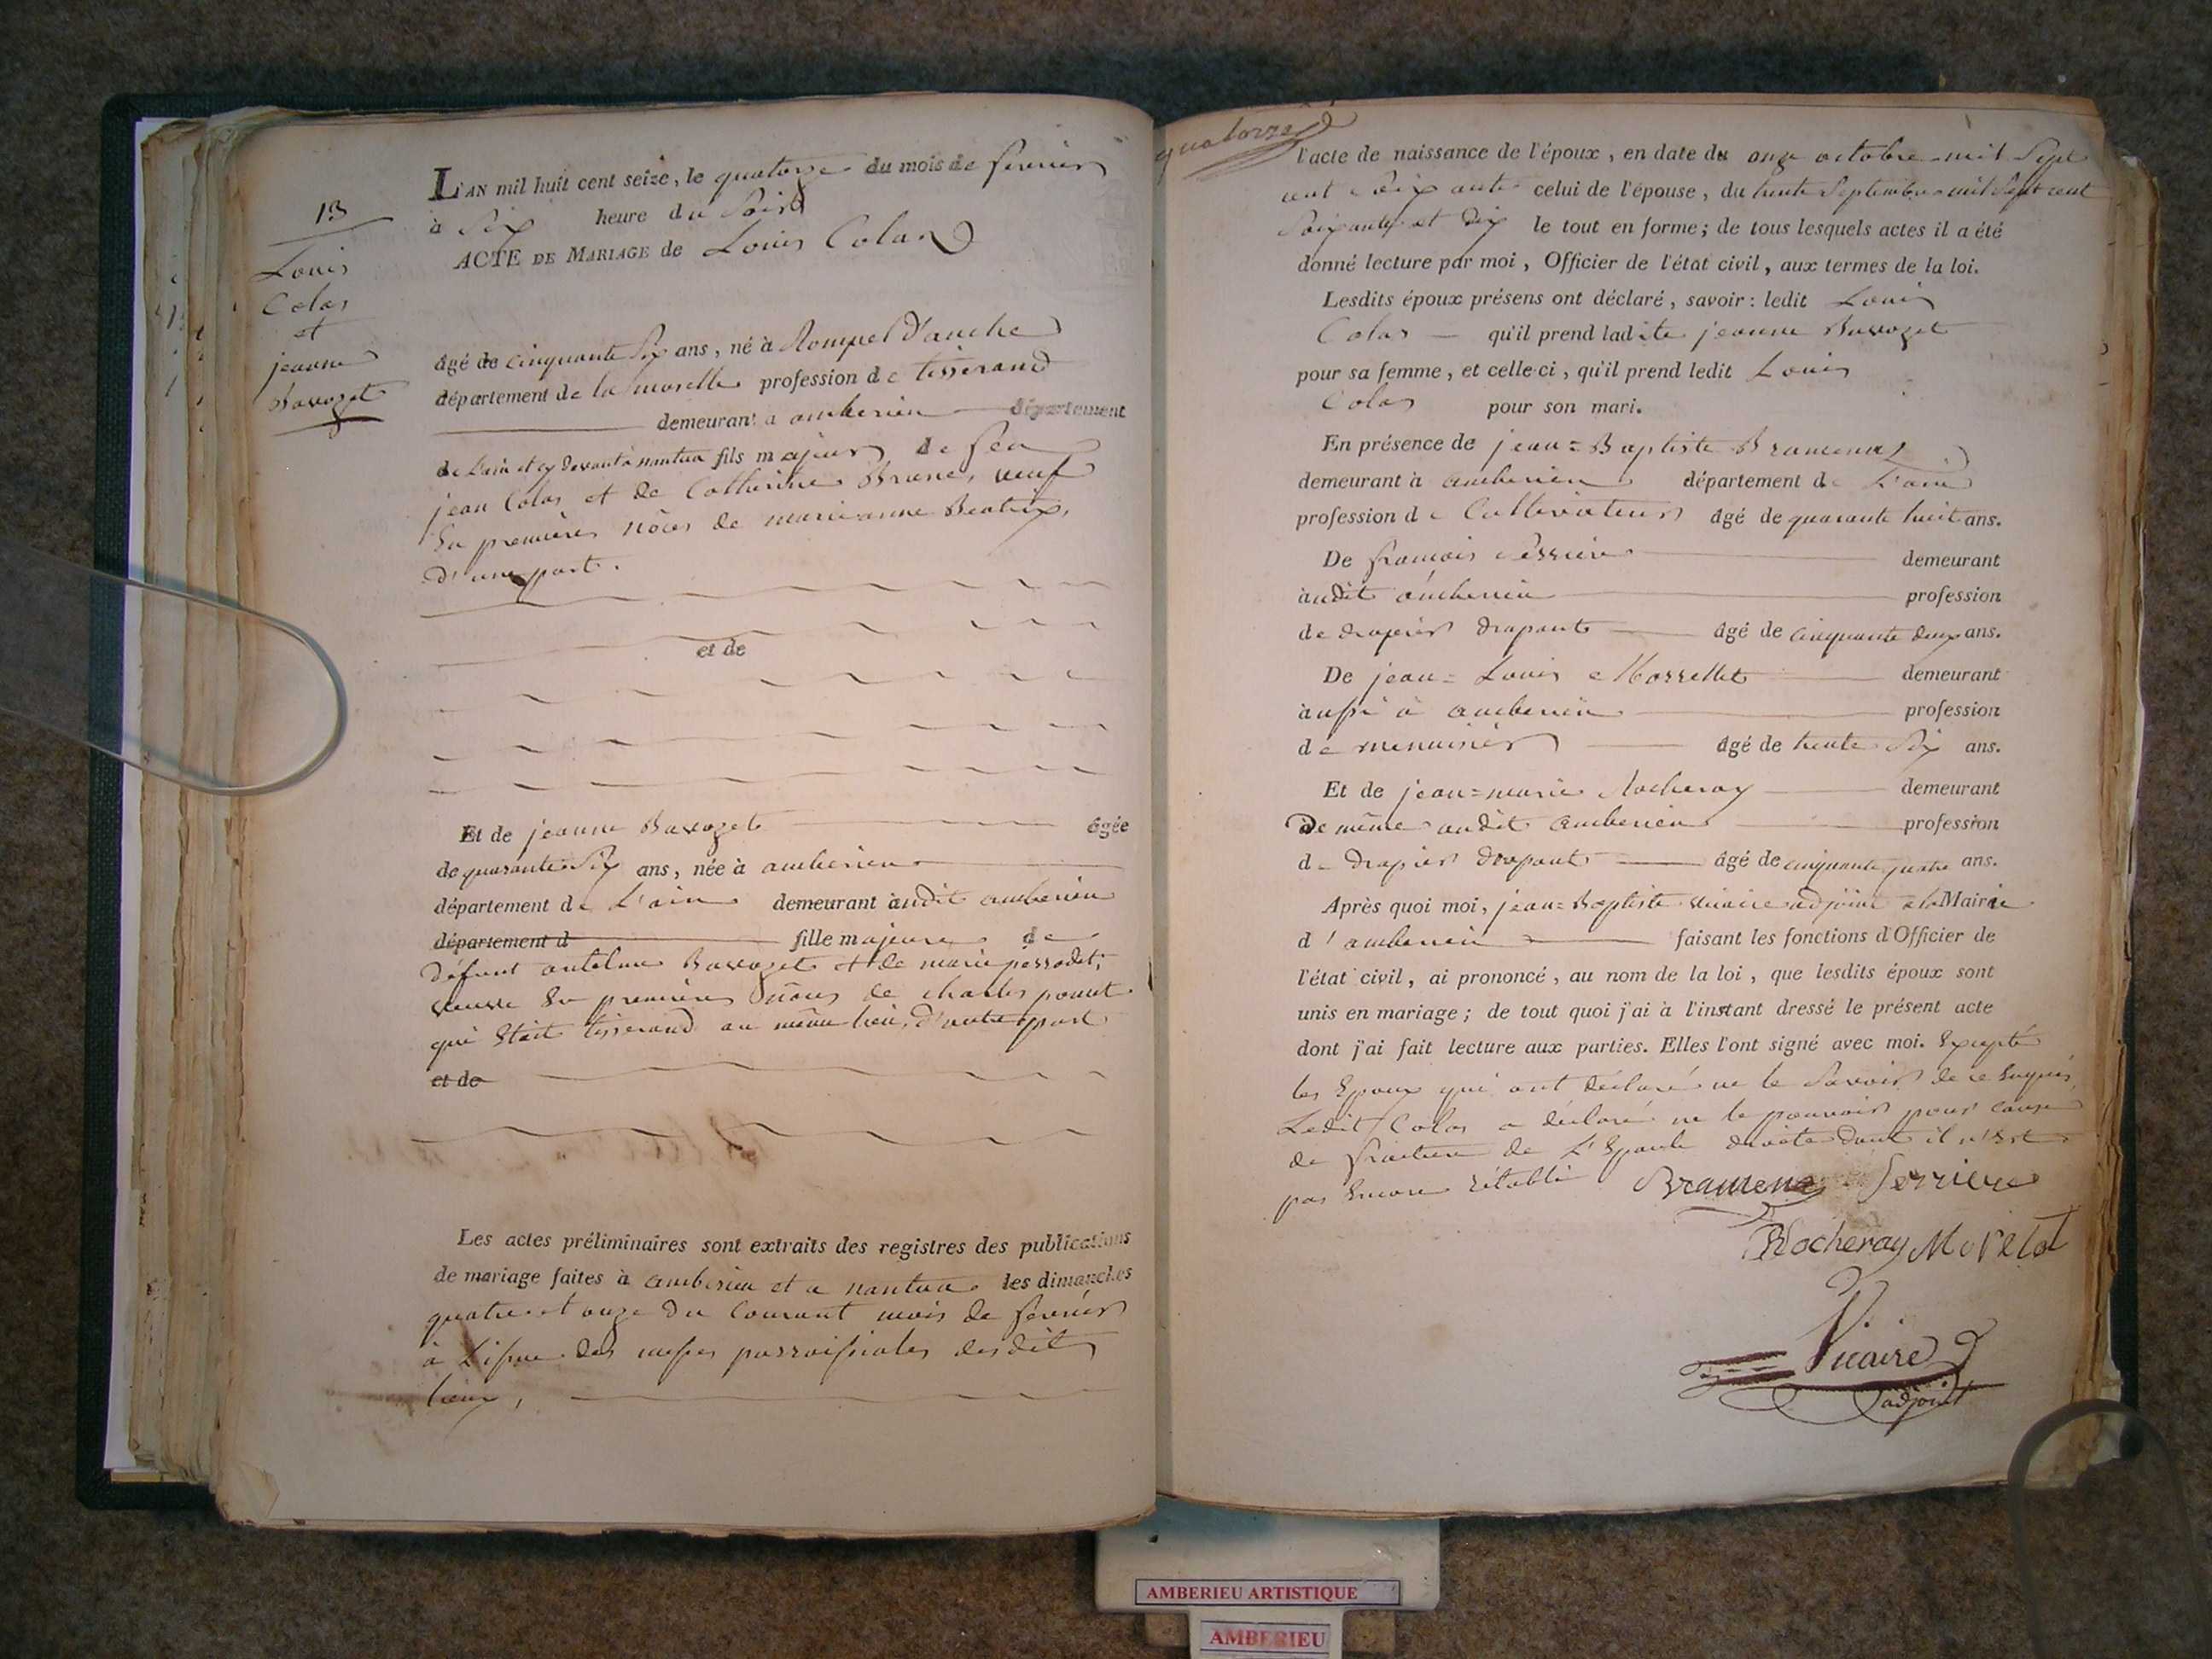 13
Louis
Colas
et
jeanne
Bavozet
L'AN mil huit cent seize, le quatorze du mois de fevrier
à Six heure du Soir
ACTE DE MARIAGE de Louis Colas
âgé de cinquante Six ans, né à
département de la moselle profession de tisserand
demeurant a amberieu département
de L'ain et cy devant à nantua fils majeur de feu
jean Colas et de Catherine Brune, veuf
En premieres nôces de marianne Beatrix,
d'une part.
et de
Et de jeanne Bavozet âgée
de quarante Six ans, née à amberieu
département de L'ain demeurant audit amberieu
département d fille majeure de
défunt antelme Bavozet et de marie
veuve En premieres nôces de charles
qui Etait tisserand au même lieu, d'autre part
et de
Les actes préliminaires sont extraits des registres des publications
de mariage faites à amberieu et a nantua les dimanches
quatre et onze du Courant mois de fevrier
à L'issue des messes parroissiales desdits
lieux,
quatorze
l'acte de naissance de l'époux, en date du onze octobre mil Sept
cent Soixante celui de l'épouse, du trente Septembre mil Sept cent
Soixante et dix le tout en forme; de tous lesquels actes il a été
donné lecture par moi, Officier de l'état civil, aux termes de la loi.
Lesdits époux présens ont déclaré, savoir: ledit Louis
Colas qu'il prend ladite jeanne Bavozet
pour sa femme, et celle-ci, qu'il prend ledit Louis
Colas pour son mari.
En présence de jean=Baptiste Bramenas
demeurant à amberieu département de L'ain
profession de Cultivateur âgé de quarante huit ans.
De francois Serriere demeurant
audit amberieu profession
de drapier drapant âgé de cinquante deux ans.
De jean=Louis demeurant
aussi à amberieu profession
de menuisier âgé de trente Six ans.
Et de jean=marie Rocheray demeurant
de même audit amberieu profession
de drapier drapant âgé de cinquante quatre ans.
Après quoi moi, jean=Baptiste vicaire adjoint a la Mairie
d'amberieu faisant les fonctions d'Officier de
l'état civil, ai prononcé, au nom de la loi, que lesdits époux sont
unis en mariage; de tout quoi j'ai à l'instant dressé le présent acte
dont j'ai fait lecture aux parties. Elles l'ont signé avec moi. Excepté
les Epoux qui ont déclaré ne le Savoir de ce Enquis,
Ledit Colas a déclaré ne le pouvoir pour cause
de fracture de L'Epaule droite dont il n'Est
pas Encore rétabli Bramenas Serriere
Rocheray Morelet
Vicaire
adjoint
AMBERIEU ARTISTIQUE
AMBERIEU